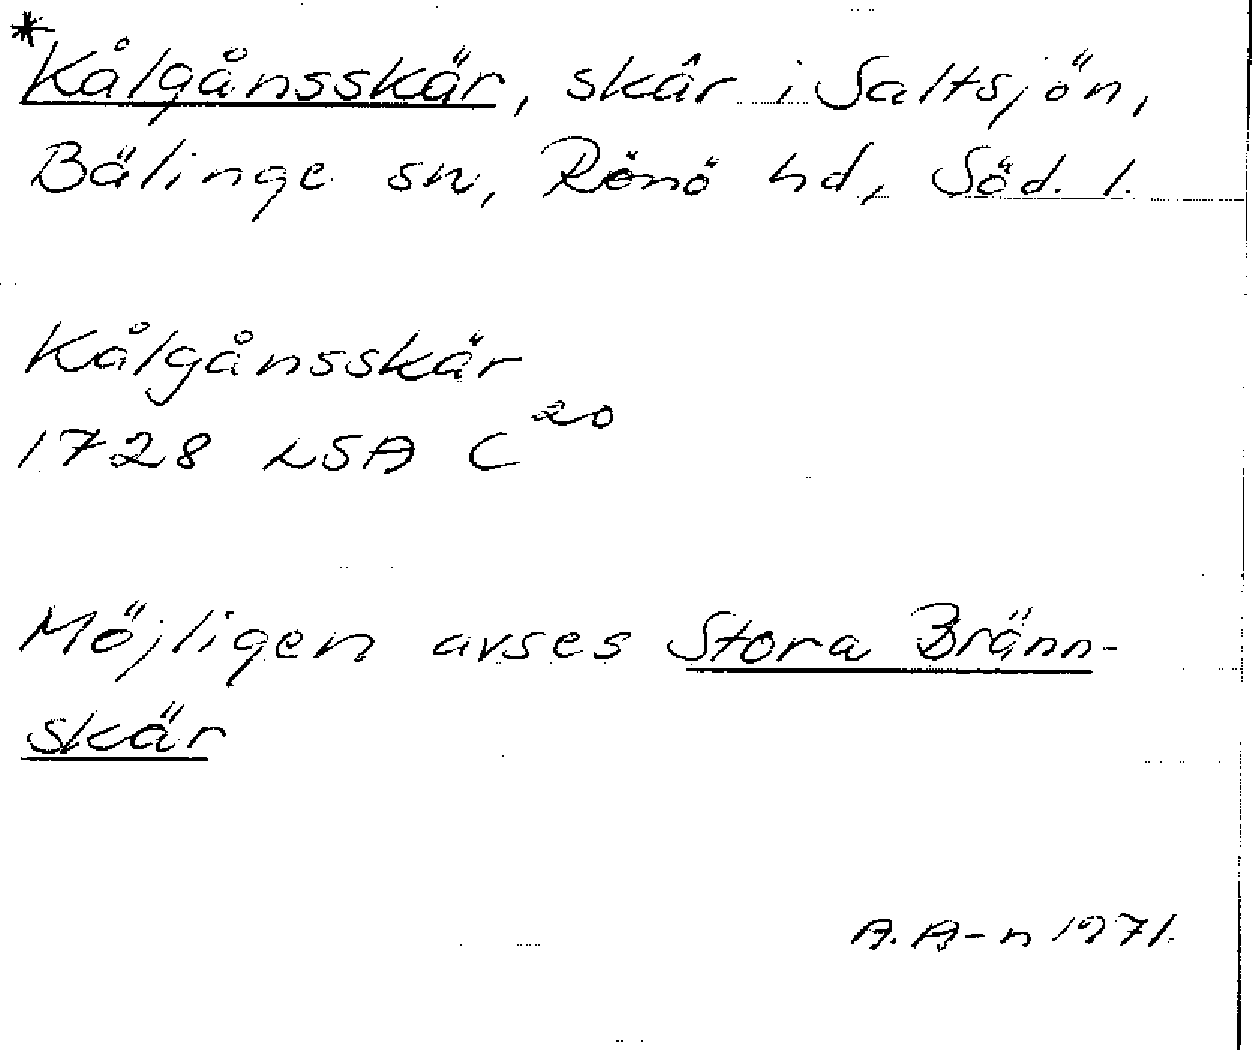 *Kålgånsskär, skär i Saltsjön,
Bälinge sn, Rönö hd, Söd. l.
Kålgånsskär
1728 LSA C 20
Möjligen avses Stora Bränn-
skär
A. A-n 1971.